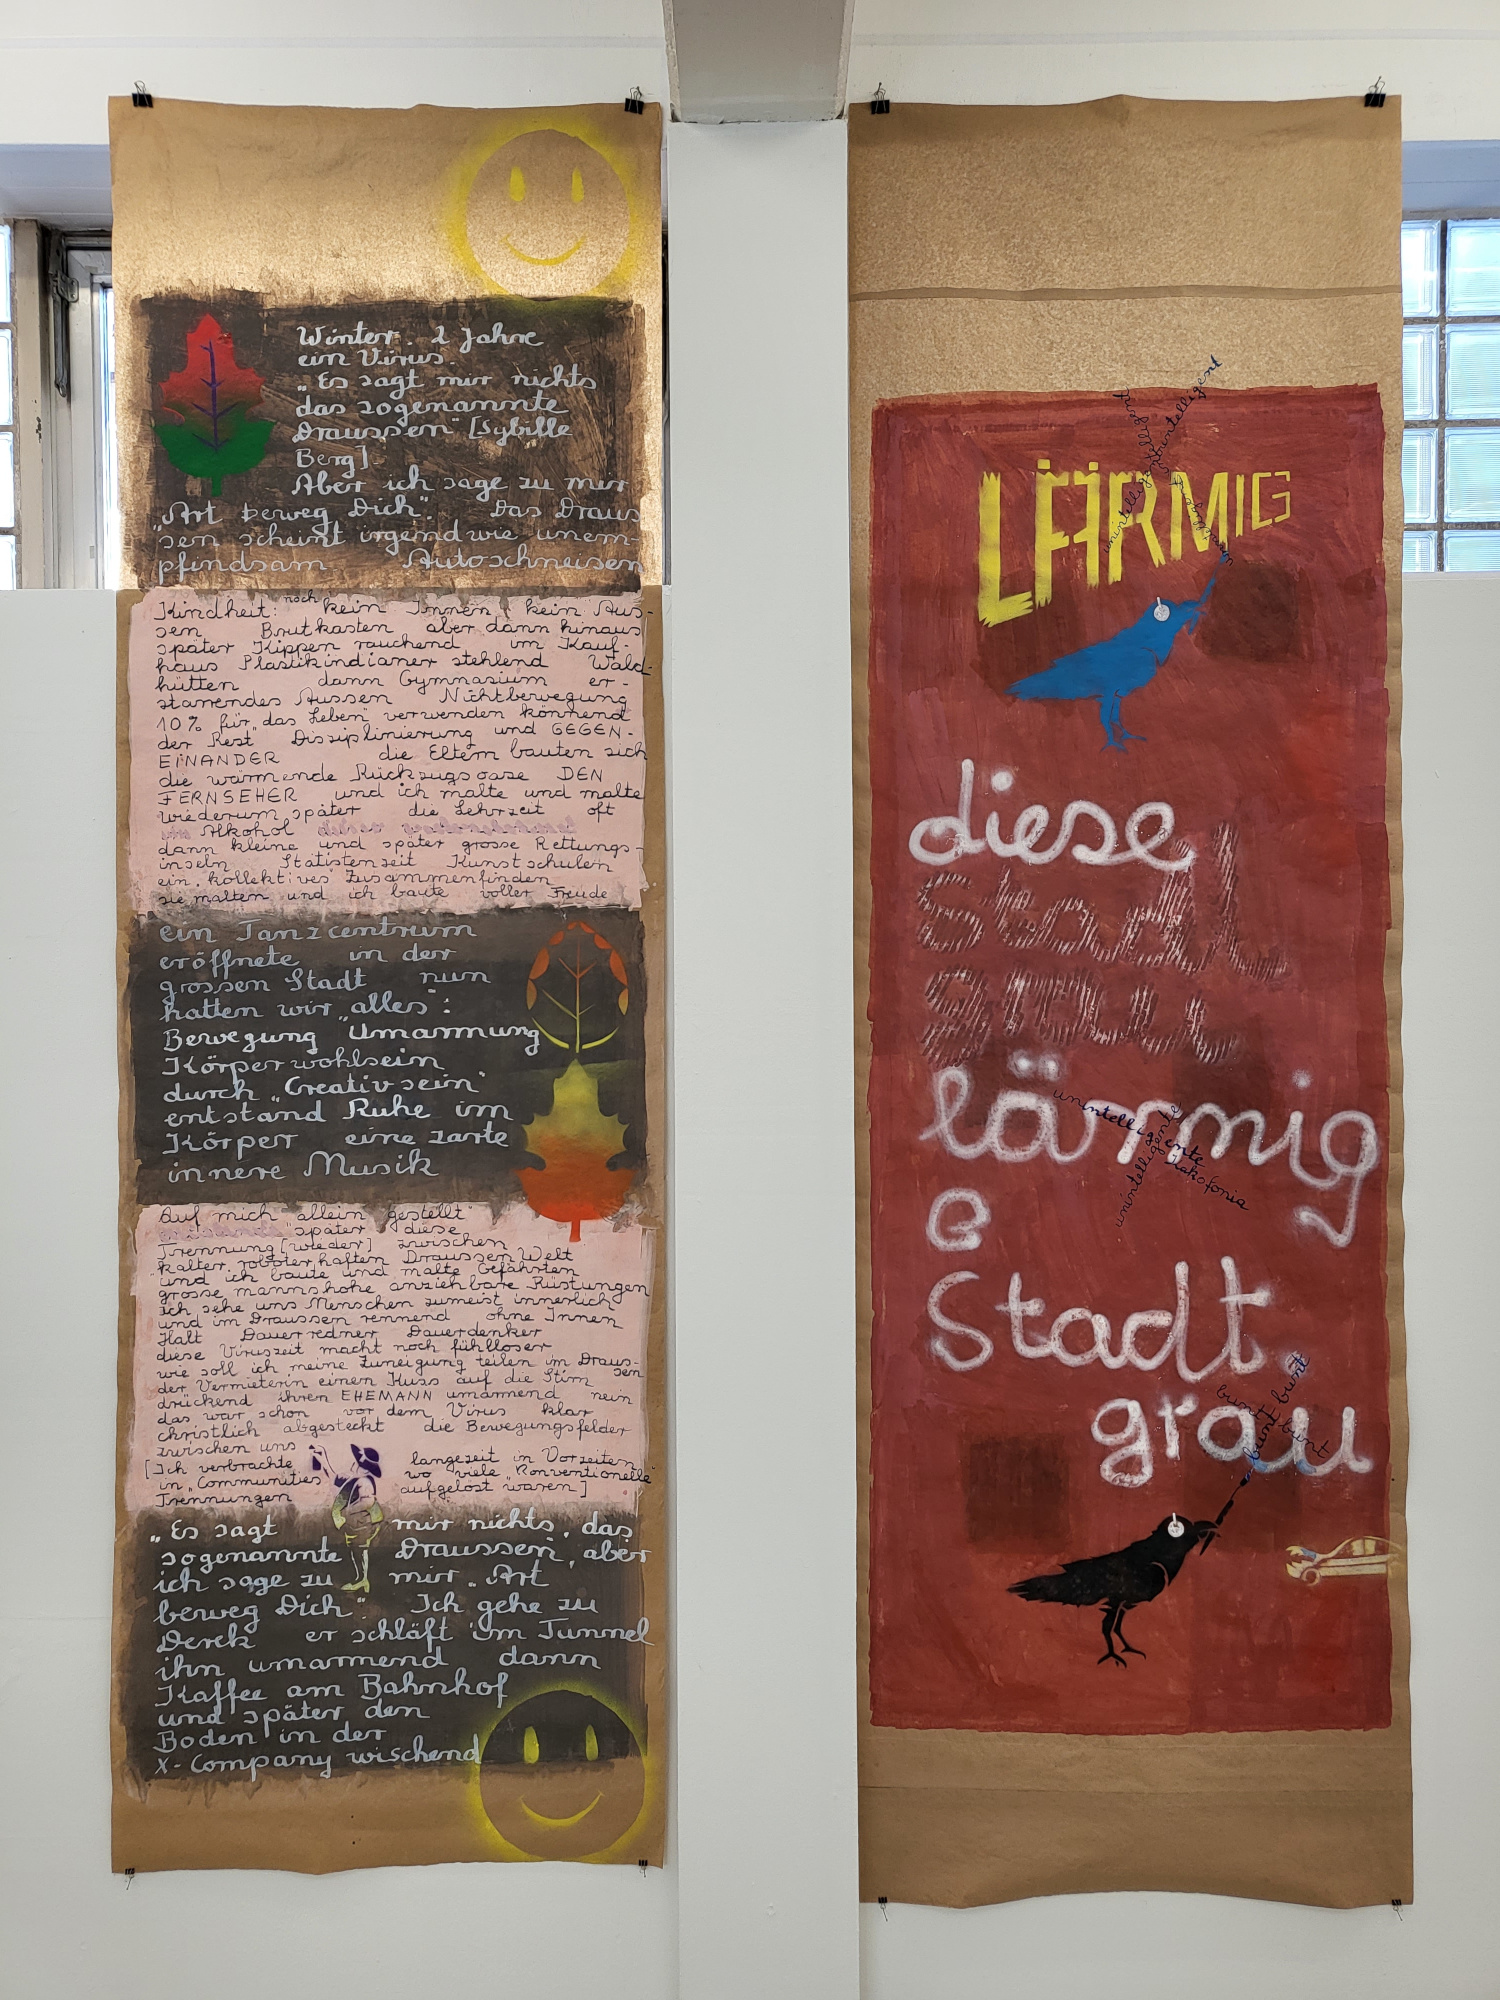 Winter. 2 Jahre
ein Virus.
„Es sagt mir nichts
das sogenannte
Draussen" [Sybille
Berg]
Aber ich sage zu mir
„Art berweg Dich". Das Draus
sen scheint irgendwie unem-
pfindsam Autoschneisen
Kindheit: noch kein Innen kein Aus-
sen Brutkasten aber dann hinaus
später Kippen rauchend im Kauf-
haus Plastikindianer stehlend Wald-
hütten dann Gymnasium er-
starrendes Aussen Nichtbewegung
10% für „das Leben" verwenden könnend
der Rest Disziplinierung und GEGEN-
EINANDER die Eltern bauten sich
die wärmende Rückzugsoase DEN
FERNSEHER und ich malte und malte
wiederum später die Lehrzeit oft
Alkohol
dann kleine und später grosse Rettungs-
inseln Statistenzeit Kunstschulen
ein „kollektives" Zusammenfinden
sie malten und ich baute voller Freude
ein Tanzcentrum
eröffnete in der
grossen Stadt nun
hatten wir „alles":
Bewegung Umarmung
Körperwohlsein
durch „Creativsein"
entstand Ruhe im
Körper eine zarte
innere Musik
Auf mich allein gestellt
später diese
Trennung [wieder] zwischen
kalter roboterhaften DraussenWelt
und ich baute und malte Gefährten
grosse mannshohe anziehbare Rüstungen
ich sehe uns Menschen zumeist innerlich
und im Draussen rennend ohne Innen
Halt Dauerredner Dauerdenker
diese Viruszeit macht noch fühlloser
wie soll ich meine Zuneigung teilen im Draus-
sen
der Vermieterin einen Kuss auf die Stirn
drückend ihren EHEMANN umarmend nein
das war schon vor dem Virus klar
christlich abgesteckt die Bewegungsfelder
zwischen uns
[Ich verbrachte langezeit in Vorzeiten
in „Communities" wo viele „Konventionelle"
Trennungen aufgelöst waren]
„Es sagt mir nichts, das
sogenannte Draussen", aber
ich sage zu mir „Art
berweg Dich". Ich gehe zu
Derek er schläft im Tunnel
ihn umarmend dann
Kaffee am Bahnhof
und später den
Boden in der
X-Company wischend
LÄRMIG
diese
Stadt
grau
lärmig
e
Stadt
grau
unintelligente
unintelligente
Kakofonia
bunt bunt
bunt bunt
bunt bunt